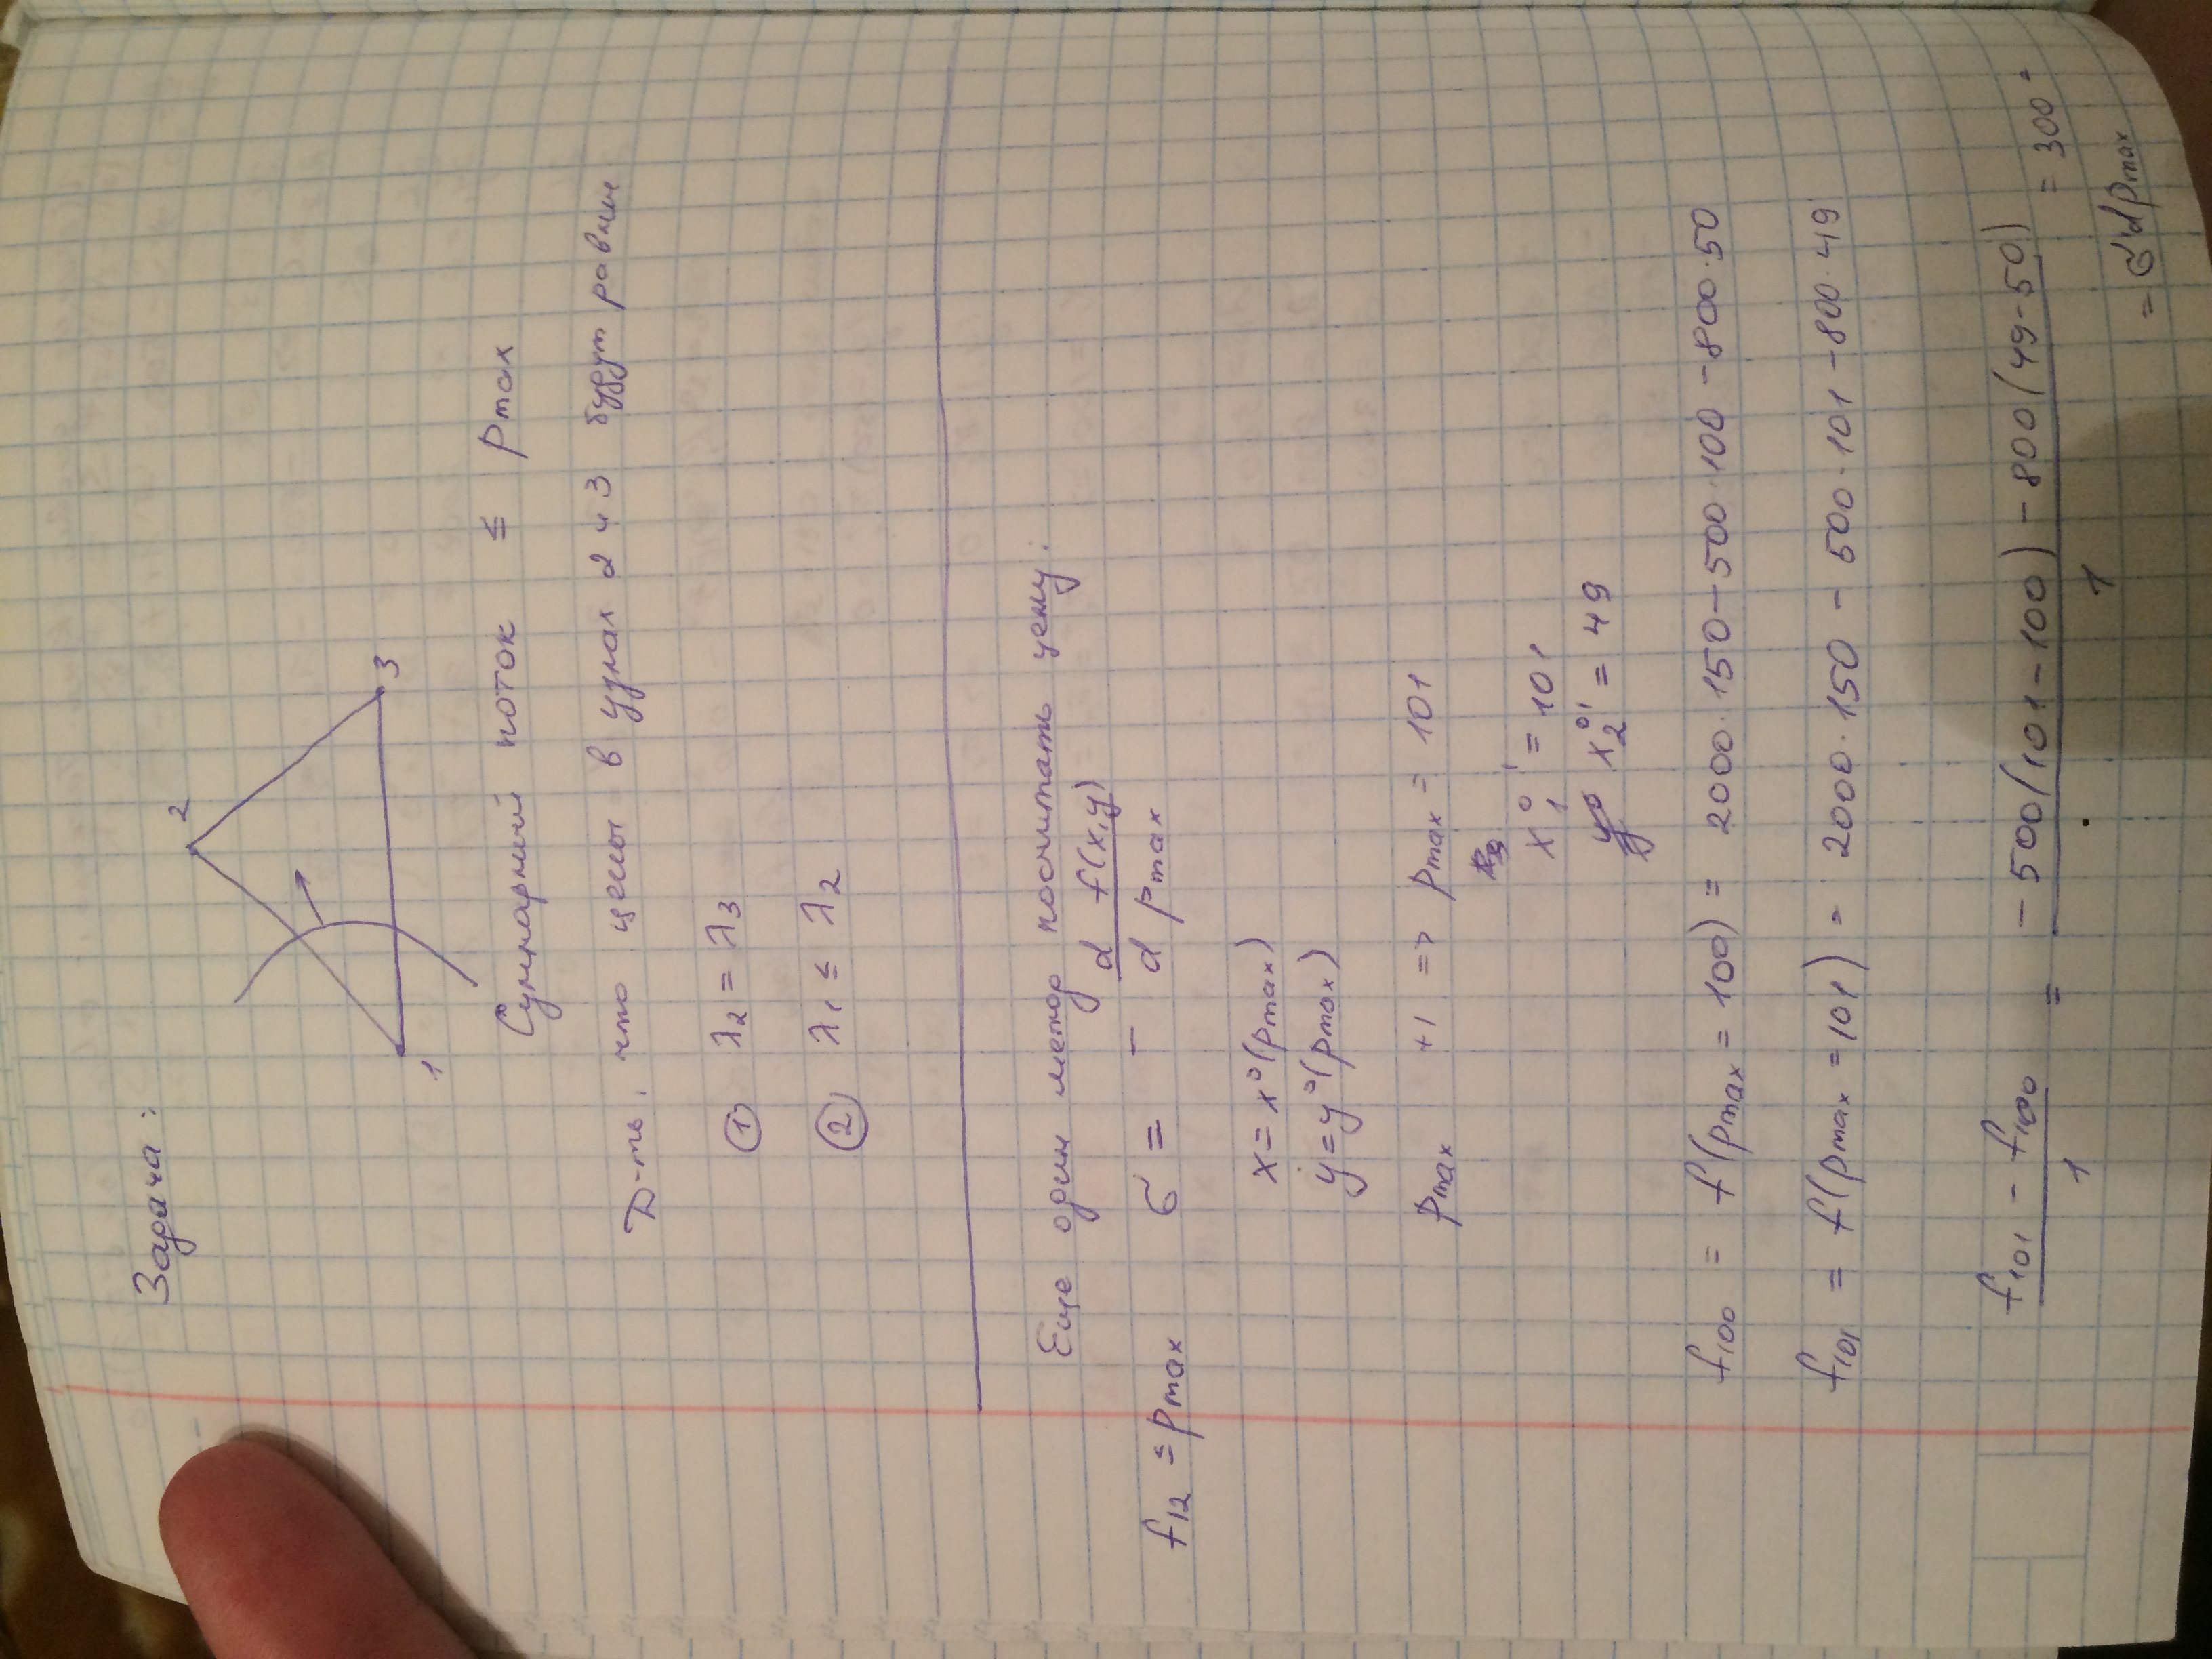 Задача:
2
1
3
Суммарный поток ≤ Pmax
Д-ть, что цены в узлах 2 и 3 будут равны
① λ2 = λ3
② λ1 ≤ λ2
Еще один метод посчитать цену:
f12 ≤ Pmax σ = - d f(x,y) / d Pmax
x = x⁰(Pmax)
y = y⁰(Pmax)
Pmax +1 => Pmax = 101
x1⁰' = 101
x2⁰' = 49
f100 = f(Pmax = 100) = 2000·150 - 500·100 - 800·50
f101 = f(Pmax = 101) = 2000·150 - 500·101 - 800·49
(f101 - f100) / 1 = (-500(101-100) - 800(49-50)) / 1 = 300 =
= σ dPmax